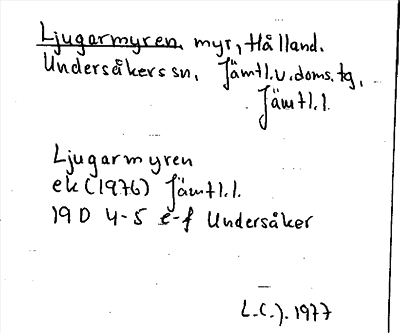 Ljugarmyren, myr, Hålland.
Undersåkers sn, Jämtl.v.doms.tg,
Jämtl.l.
Ljugarmyren
ek (1976) Jämtl.l.
19D 4-5 e-f Undersåker
L.C.J. 1977